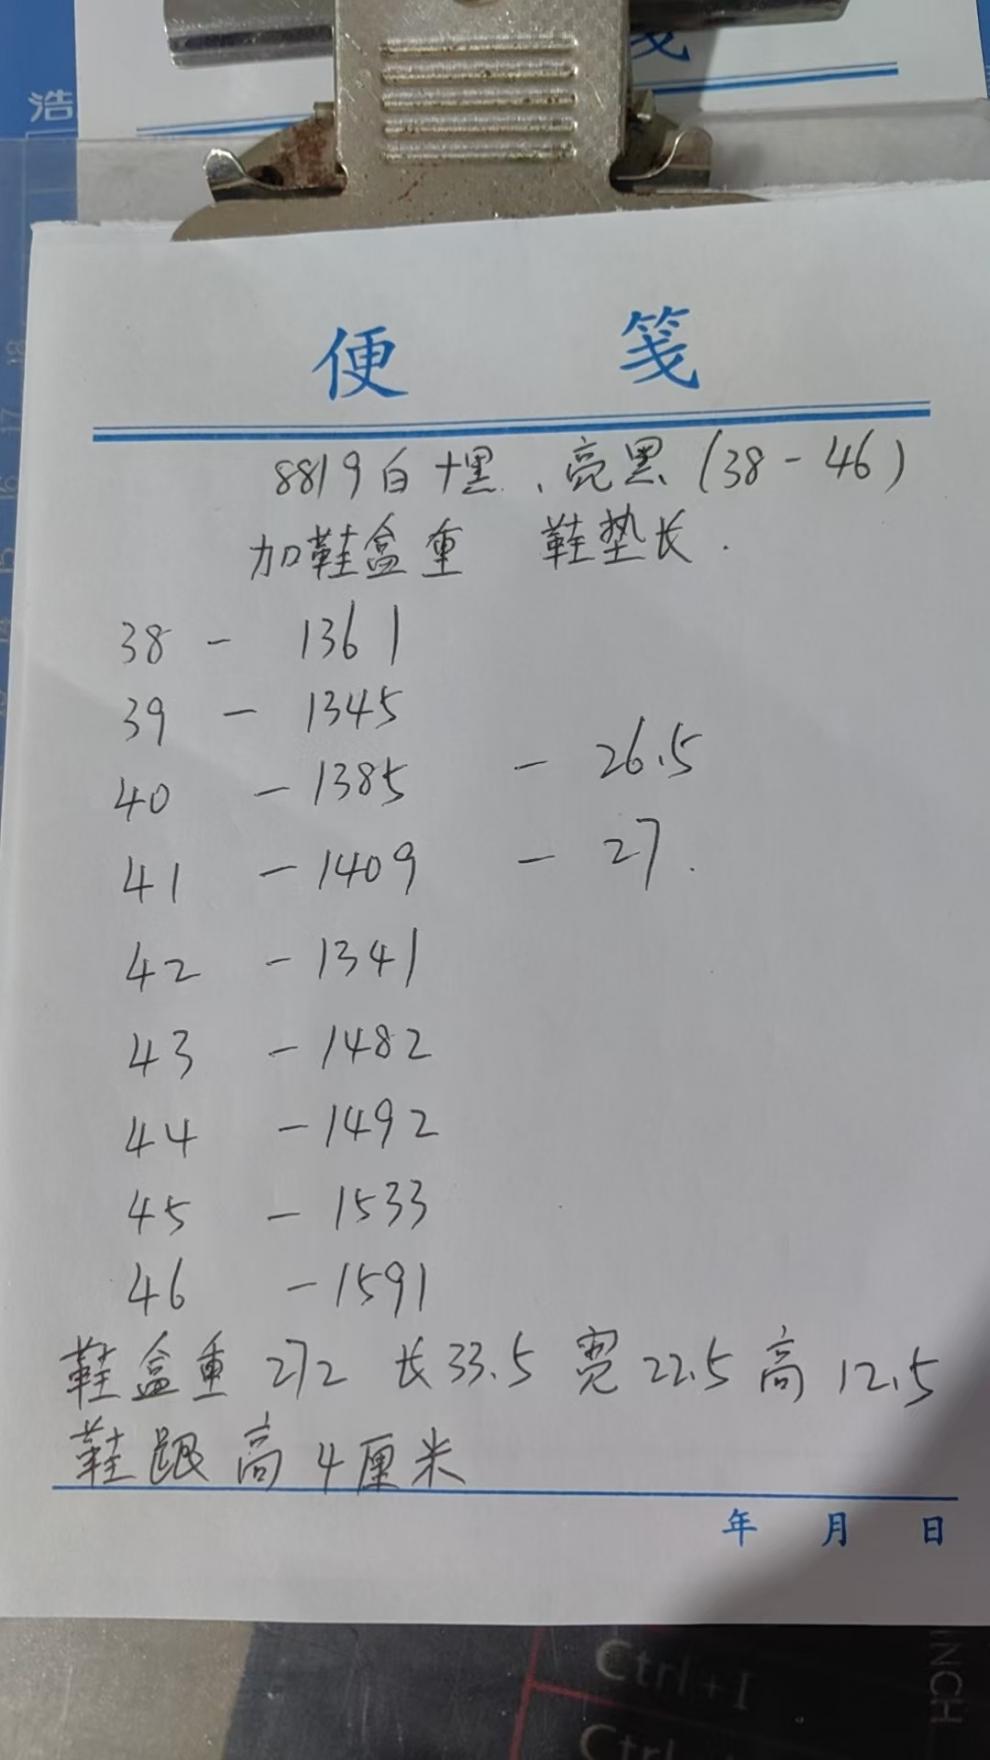 笺
浩
便 笺
8819白+黑、亮黑(38-46)
加鞋盒重 鞋垫长.
38 - 1361
39 - 1345
40 - 1385 - 26.5
41 - 1409 - 27.
42 - 1341
43 - 1482
44 - 1492
45 - 1533
46 - 1591
鞋盒重272 长33.5 宽22.5 高12.5
鞋跟高4厘米
年 月 日
Ctrl+I
INCH